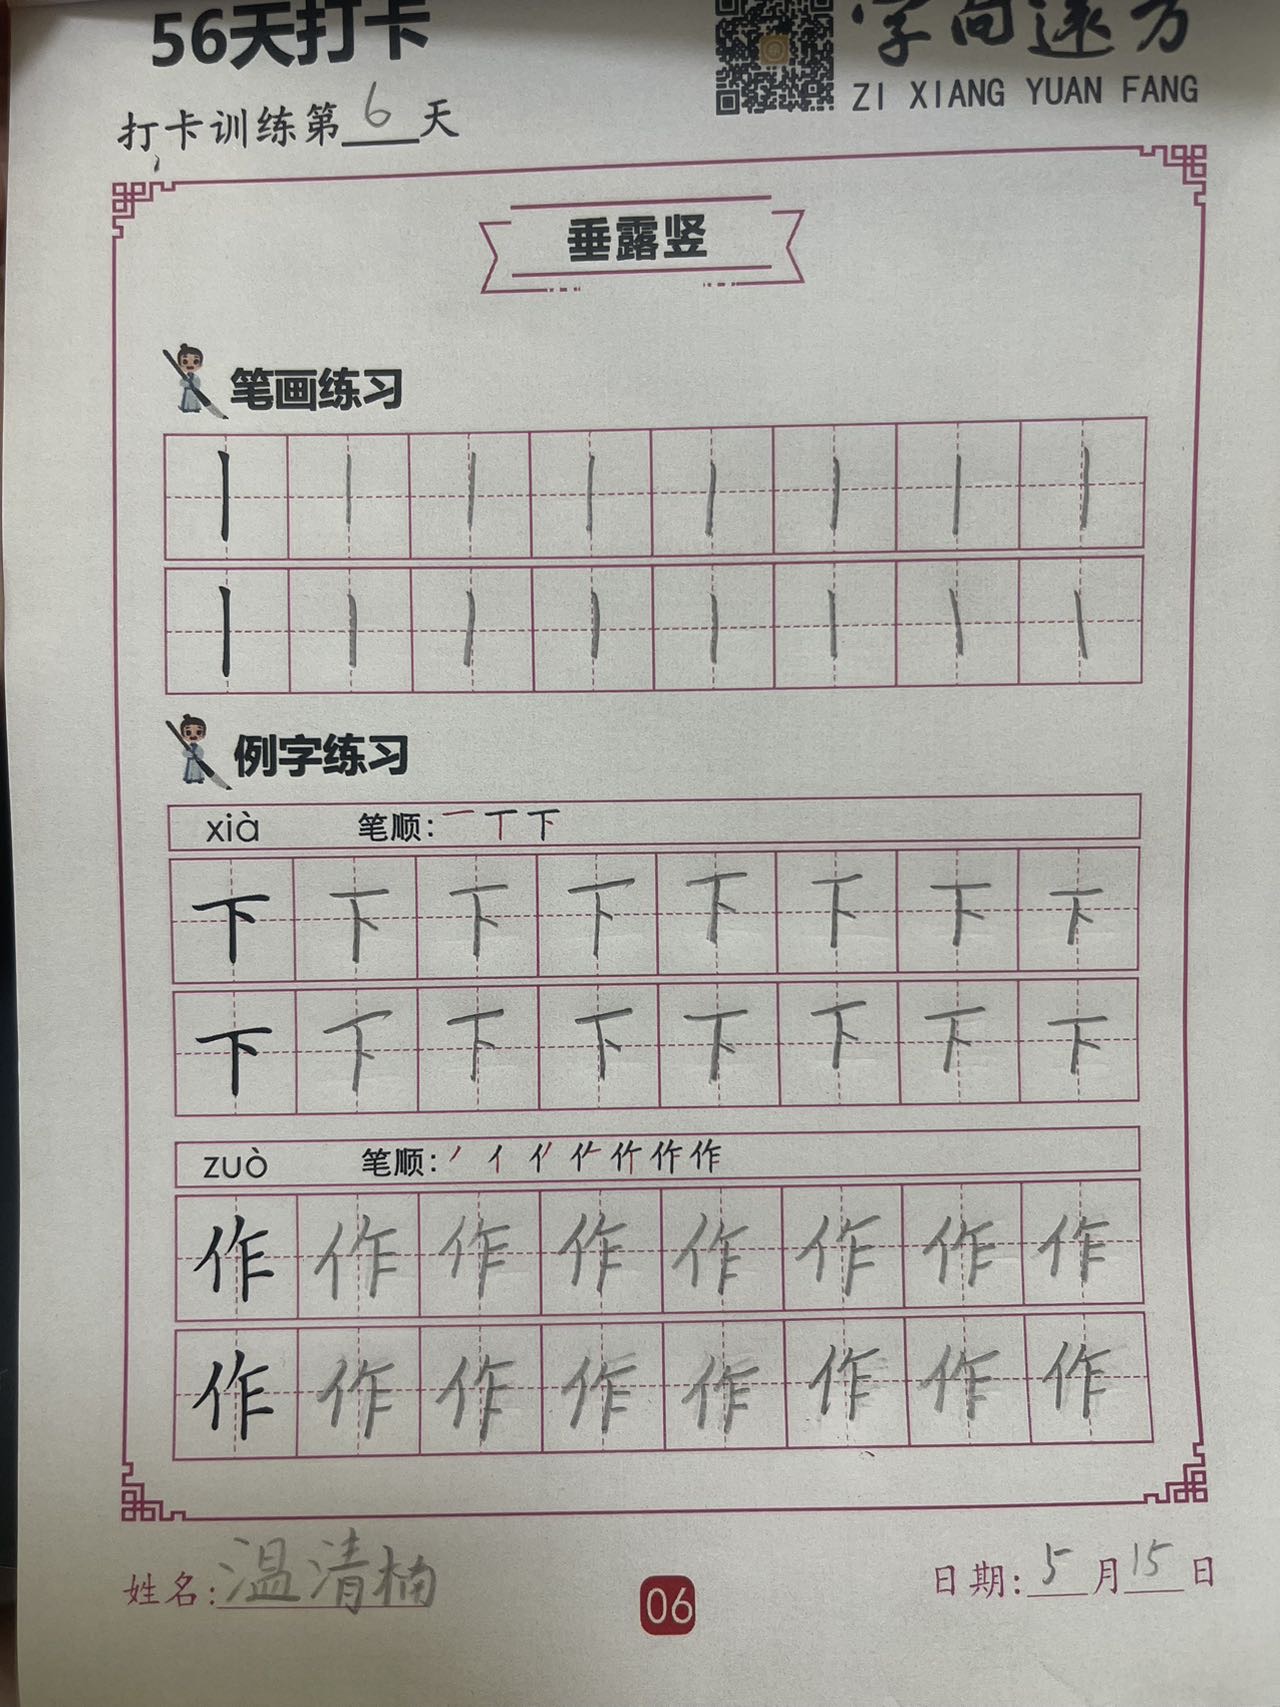 56天打卡
字向远方
ZI XIANG YUAN FANG
打卡训练第6天
垂露竖
笔画练习
丨 丨 丨 丨 丨 丨 丨 丨
丨 丨 丨 丨 丨 丨 丨 丨
例字练习
xià 笔顺: 一 丅 下
下 下 下 下 下 下 下 下
下 下 下 下 下 下 下 下
zuò 笔顺: 丿 亻 作 作
作 作 作 作 作 作 作 作
作 作 作 作 作 作 作 作
姓名: 温清楠
日期: 5月15日
06